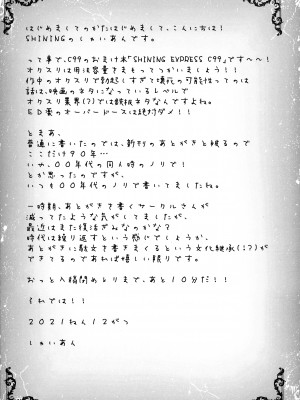 はじめましてのかたはじめまして、こんにちは!
SHININGのしゃいあんです。
って事で、C99のおまけ本「SHINING EXPRESS C99」です~~!
オクスリは用法容量きまもってつかいましょう!!
作中のオクスリで勃起しすぎて壊死の可能性ってのは
話は、映画のネタになっているレベルで
オクスリ業界(?)では鉄板ネタなんですよね。
ED薬のオーバードースは絶対ダメ!!
とまあ、
普通に書いたのでは、新刊のあとがきと被るので
ここだけ90年…
いや、00年代の同人時のノリで!
とか思ったのですが、
いつも00年代のノリで書いてましたね。
一時期、あとがきで書くサークルさんが
減ってたような気がしてましたが、
最近はまた復活ぎみなのかな?
時代は繰り返すという感じでしょうか。
あとがきに駄文を書きまくるという文化継承(!?)が
できてるのであれば嬉しい限りです。
おっと入稿〆めとりまで、あと10分だ!!
それでは!!
2021ねん12がつ
しゃいあん